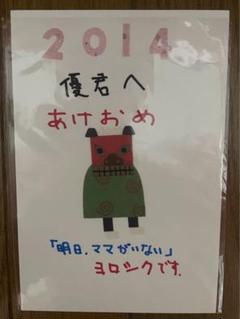 2014
優君へ
あけおめ
「明日、ママがいない」
ヨロシクです.